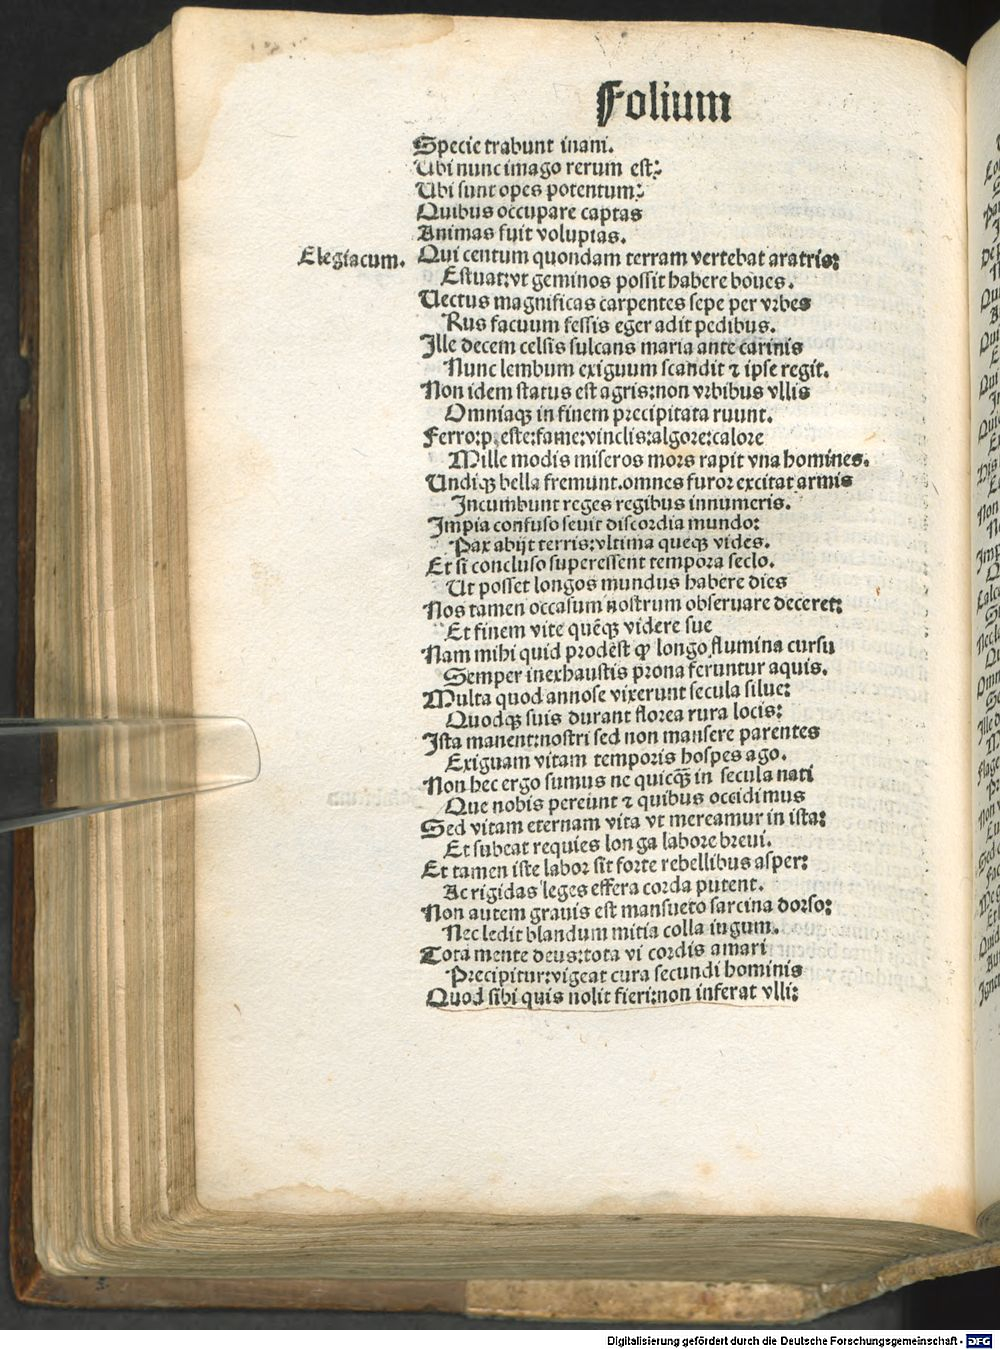 Folium
Specie trahunt inani.
Ubi nunc imago rerum est:
Ubi sunt opes potentum:
Quibus occupare captas
Animas fuit voluptas.
Elegiacum. Qui centum quondam terram vertebat aratris:
Estuat:vt geminos possit habere boues.
Uectus magnificas carpentes sepe per vrbes
Rus facuum fessis eger adit pedibus.
Ille decem celsis sulcans maria ante carinis
Nunc lembum exiguum scandit ⁊ ipse regit.
Non idem status est agris:non vrbibus vllis
Omniaqꝫ in finem precipitata ruunt.
Ferro:peste:fame:vinclis:algore:calore
Mille modis miseros mors rapit vna homines.
Undiqꝫ bella fremunt.omnes furor excitat armis
Incumbunt reges regibus innumeris.
Impia confuso seuit discordia mundo:
Pax abijt terris:vltima queqꝫ vides.
Et si concluso superessent tempora seclo.
Ut posset longos mundus habere dies
Nos tamen occasum nostrum obseruare deceret:
Et finem vite quēqꝫ videre sue
Nam mihi quid prodēst ꝙ longo flumina cursu
Semper inexhaustis prona feruntur aquis.
Multa quod annose vixerunt secula silue:
Quodqꝫ suis durant florea rura locis:
Ista manent:nostri sed non mansere parentes
Exiguam vitam temporis hospes ago.
Non hec ergo sumus ne quicqꝫ̄ in secula nati
Que nobis pereunt ⁊ quibus occidimus
Sed vitam eternam vita vt mereamur in ista:
Et subeat requies longa labore breui.
Et tamen iste labor sit forte rebellibus asper:
Ac rigidas leges effera corda putent.
Non autem grauis est mansueto sarcina dorso:
Nec ledit blandum mitia colla iugum.
Tota mente deus:tota vi cordis amari
Precipitur:vigeat cura secundi hominis
Quod sibi quis nolit fieri:non inferat vlli:
Digitalisierung gefördert durch die Deutsche Forschungsgemeinschaft - DFG